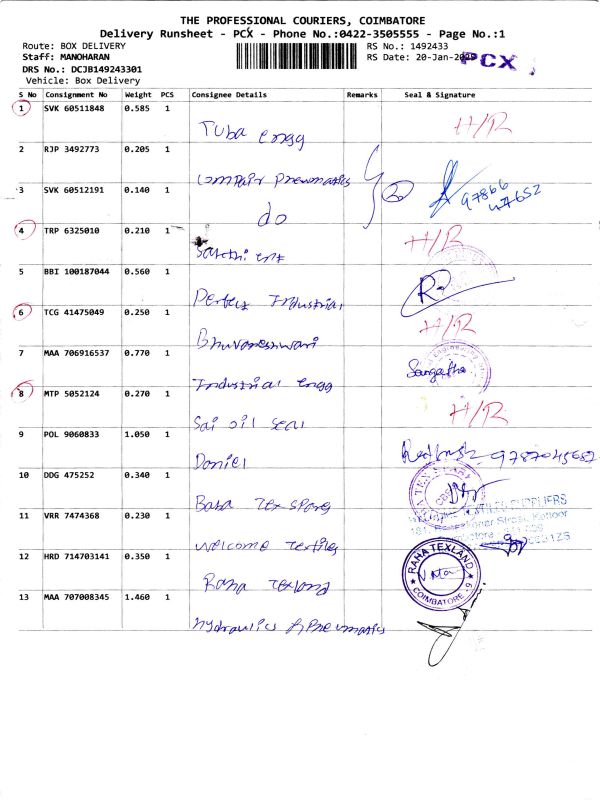 THE PROFESSIONAL COURIERS, COIMBATORE
Delivery Runsheet - PCX - Phone No.:0422-3505555 - Page No.:1
Route: BOX DELIVERY RS No.: 1492433
Staff: MANOHARAN RS Date: 20-Jan- PCX
DRS No.: DCJB149243301
Vehicle: Box Delivery
S No Consignment No Weight PCS Consignee Details Remarks Seal & Signature
1 SVK 60511848 0.585 1
Tuba engg H/R
2 RJP 3492773 0.205 1
Compair Pneumatics
3 SVK 60512191 0.140 1 2 97866
do 47652
4 TRP 6325010 0.210 1 H/R
Sakthi ent
5 BBI 100187044 0.560 1
Perfect Industrial
6 TCG 41475049 0.250 1 H/R
Bhuvaneshwari
7 MAA 706916537 0.770 1 Sangatha
Industrial engg
8 MTP 5052124 0.270 1 H/R
Sai oil seal
9 POL 9060833 1.050 1
Daniel 9787045682
10 DDG 475252 0.340 1
Baba Tex Spares
11 VRR 7474368 0.230 1 SUPPLIERS
Welcome Textiles
12 HRD 714703141 0.350 1 RAHA TEXLAND
Raha Texland COIMBATORE - 9
13 MAA 707008345 1.460 1
Hydraulics & Pneumatics